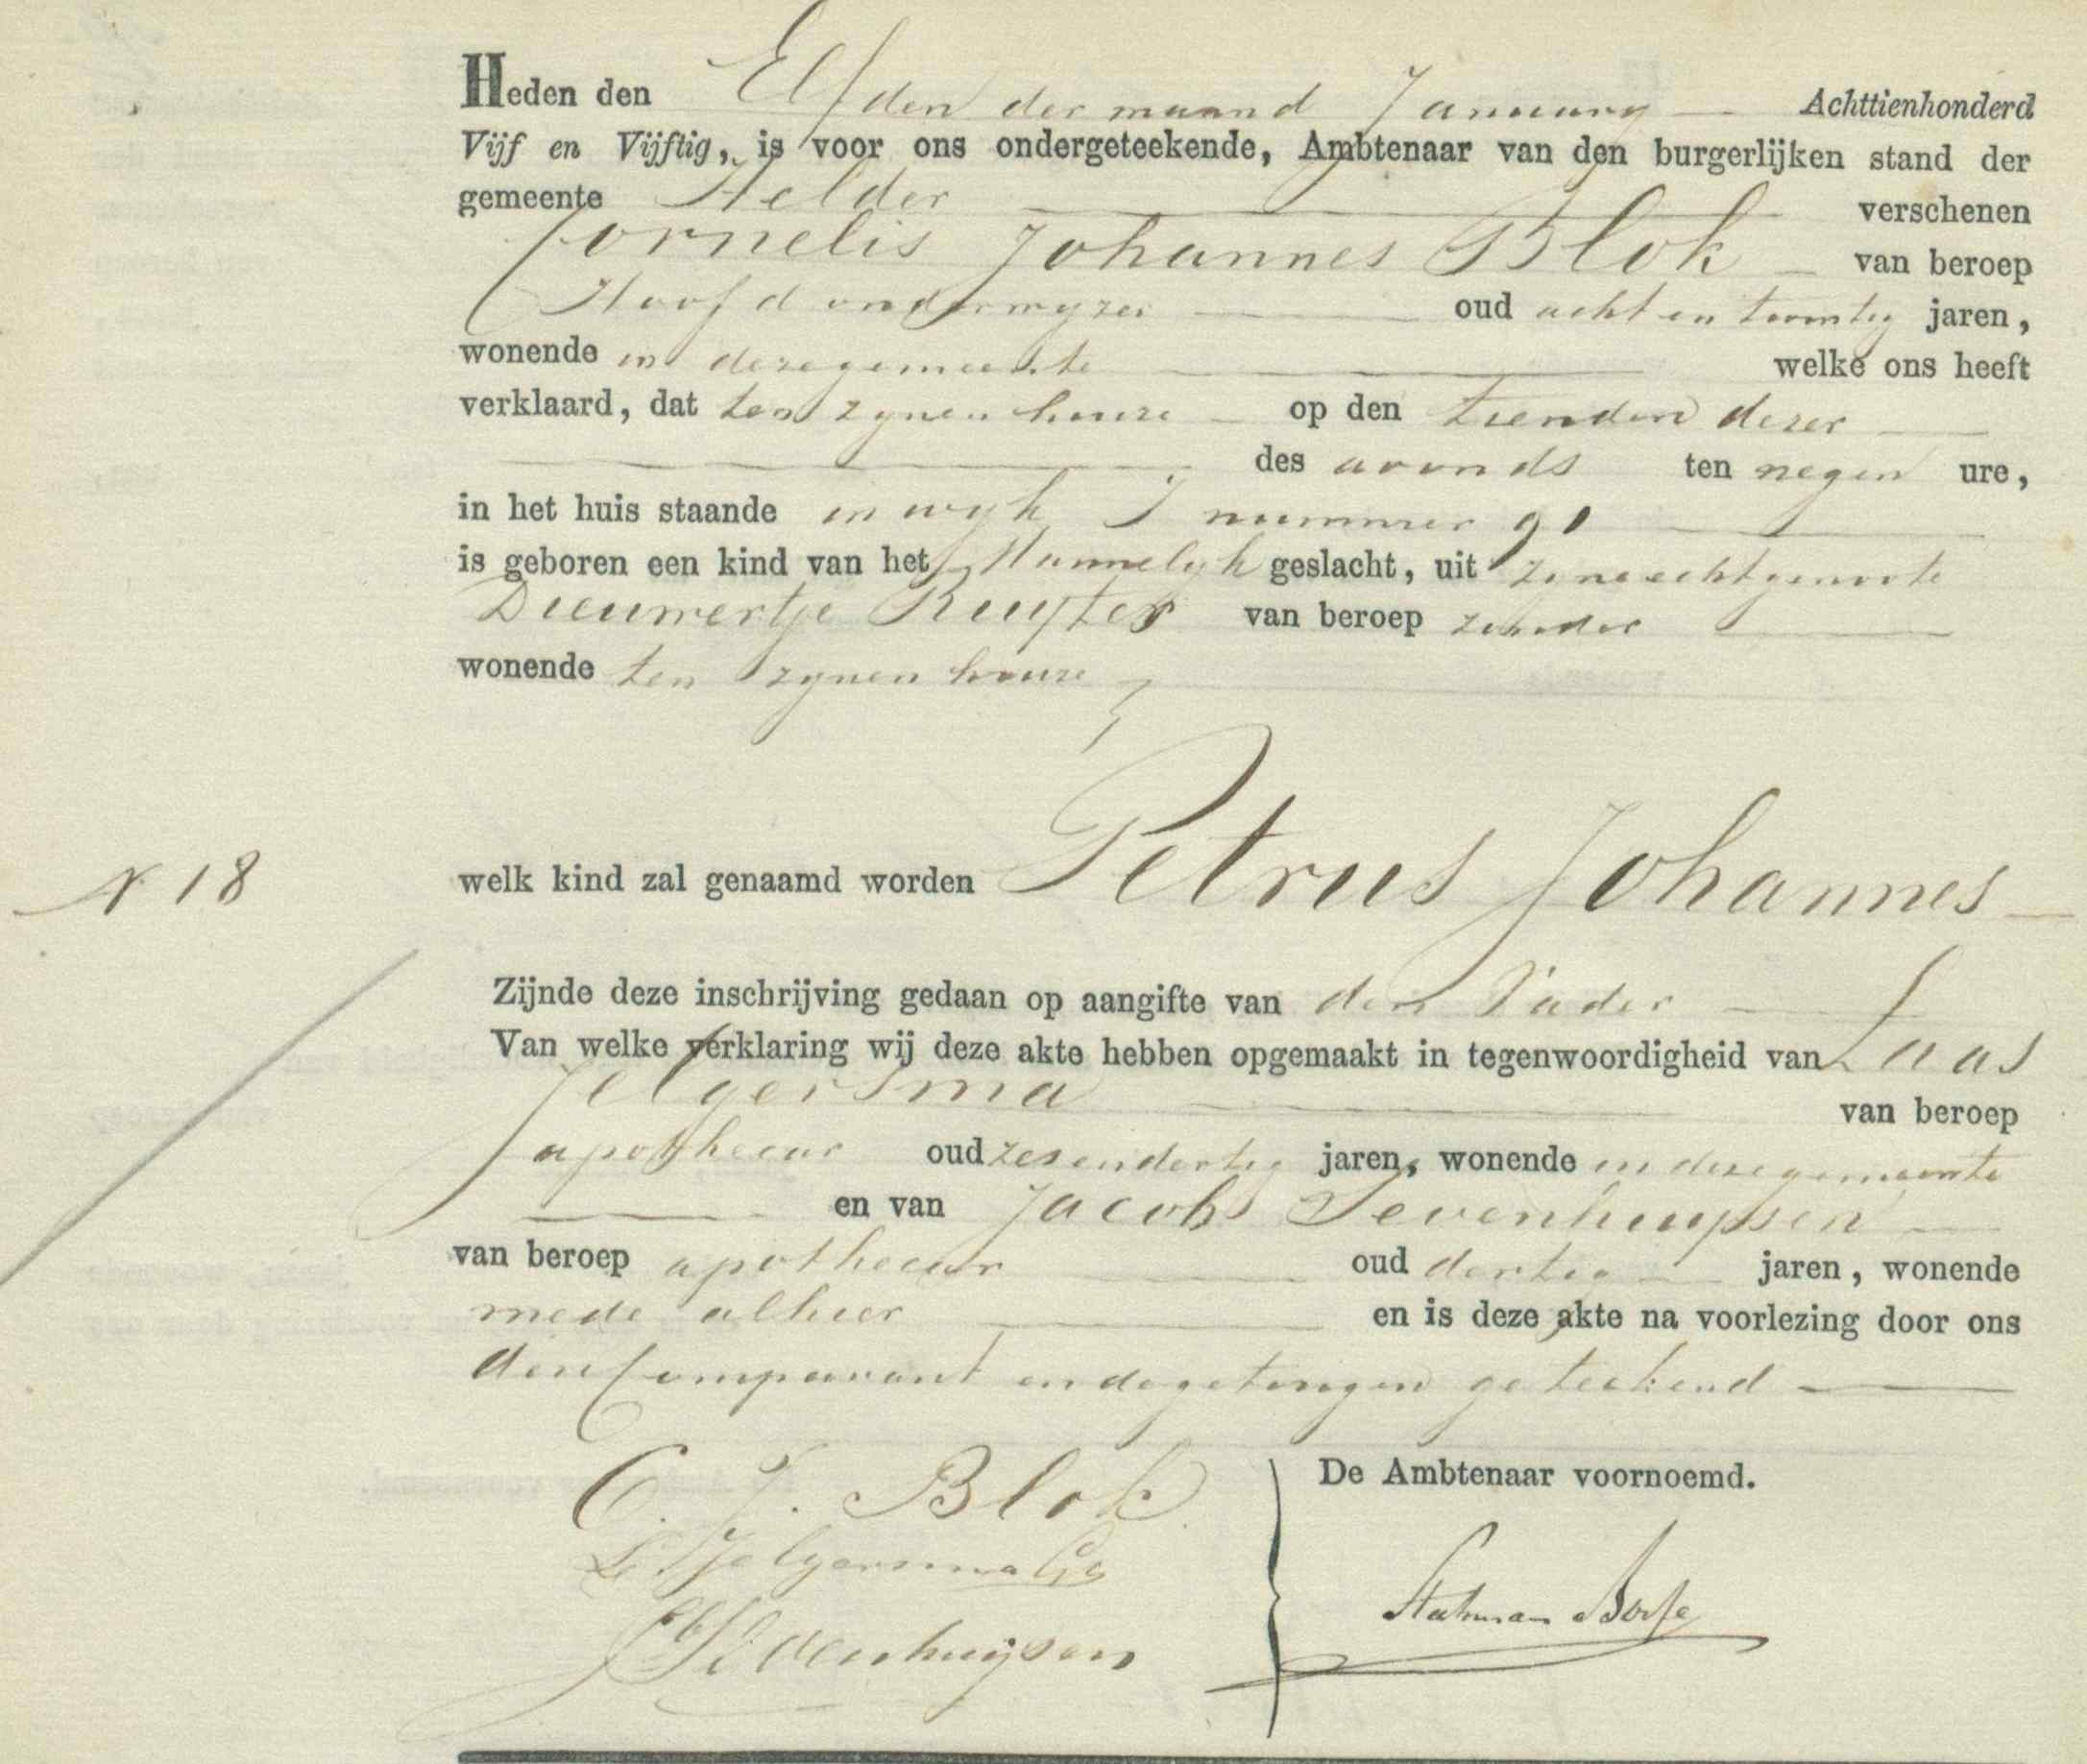 Heden den Elfden der maand January Achttienhonderd
Vijf en Vijftig, is voor ons ondergeteekende, Ambtenaar van den burgerlijken stand der
gemeente Helder verschenen
Cornelis Johannes Blok van beroep
Hoofdonderwyzer oud acht en twintig jaren,
wonende in deze gemeente welke ons heeft
verklaard, dat ten zynen huize op den tienden dezer
des avonds ten negen ure,
in het huis staande in wyk J nummer 91
is geboren een kind van het Mannelyk geslacht, uit zyne echtgenoote
Dieuwertje Ruyter van beroep zonder
wonende ten zynen huize
N 18
welk kind zal genaamd worden Petrus Johannes
Zijnde deze inschrijving gedaan op aangifte van den Vader
Van welke verklaring wij deze akte hebben opgemaakt in tegenwoordigheid van Laas
Jelgersma van beroep
apothecar oud zesendertig jaren, wonende in deze gemeente
en van Jacob Sevenhuysen
van beroep apothecar oud dertig jaren, wonende
mede alhier en is deze akte na voorlezing door ons
den Comparant en de getuigen geteekend
C. J. Blok
De Ambtenaar voornoemd.
L Jelgersma
Stakman Bosse